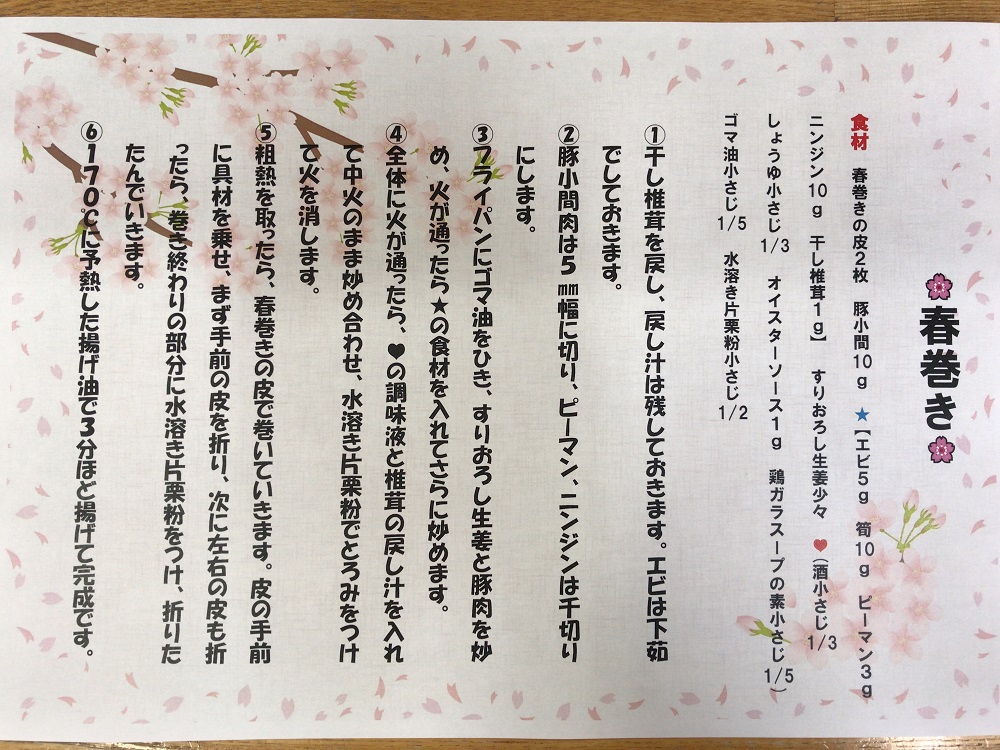 🌸春巻き🌸
食材 春巻きの皮2枚 豚小間10g ★【エビ5g 筍10g ピーマン3g
ニンジン10g 干し椎茸1g】 すりおろし生姜少々 ♥(酒小さじ1/3
しょうゆ小さじ1/3 オイスターソース1g 鶏ガラスープの素小さじ1/5)
ゴマ油小さじ1/5 水溶き片栗粉小さじ1/2
①干し椎茸を戻し、戻し汁は残しておきます。エビは下茹
でしておきます。
②豚小間肉は5㎜幅に切り、ピーマン、ニンジンは千切り
にします。
③フライパンにゴマ油をひき、すりおろし生姜と豚肉を炒
め、火が通ったら★の食材を入れてさらに炒めます。
④全体に火が通ったら、♥の調味液と椎茸の戻し汁を入れ
て中火のまま炒め合わせ、水溶き片栗粉でとろみをつけ
て火を消します。
⑤粗熱を取ったら、春巻きの皮で巻いていきます。皮の手前
に具材を乗せ、まず手前の皮を折り、次に左右の皮も折
ったら、巻き終わりの部分に水溶き片栗粉をつけ、折りた
たんでいきます。
⑥170℃に予熱した揚げ油で3分ほど揚げて完成です。